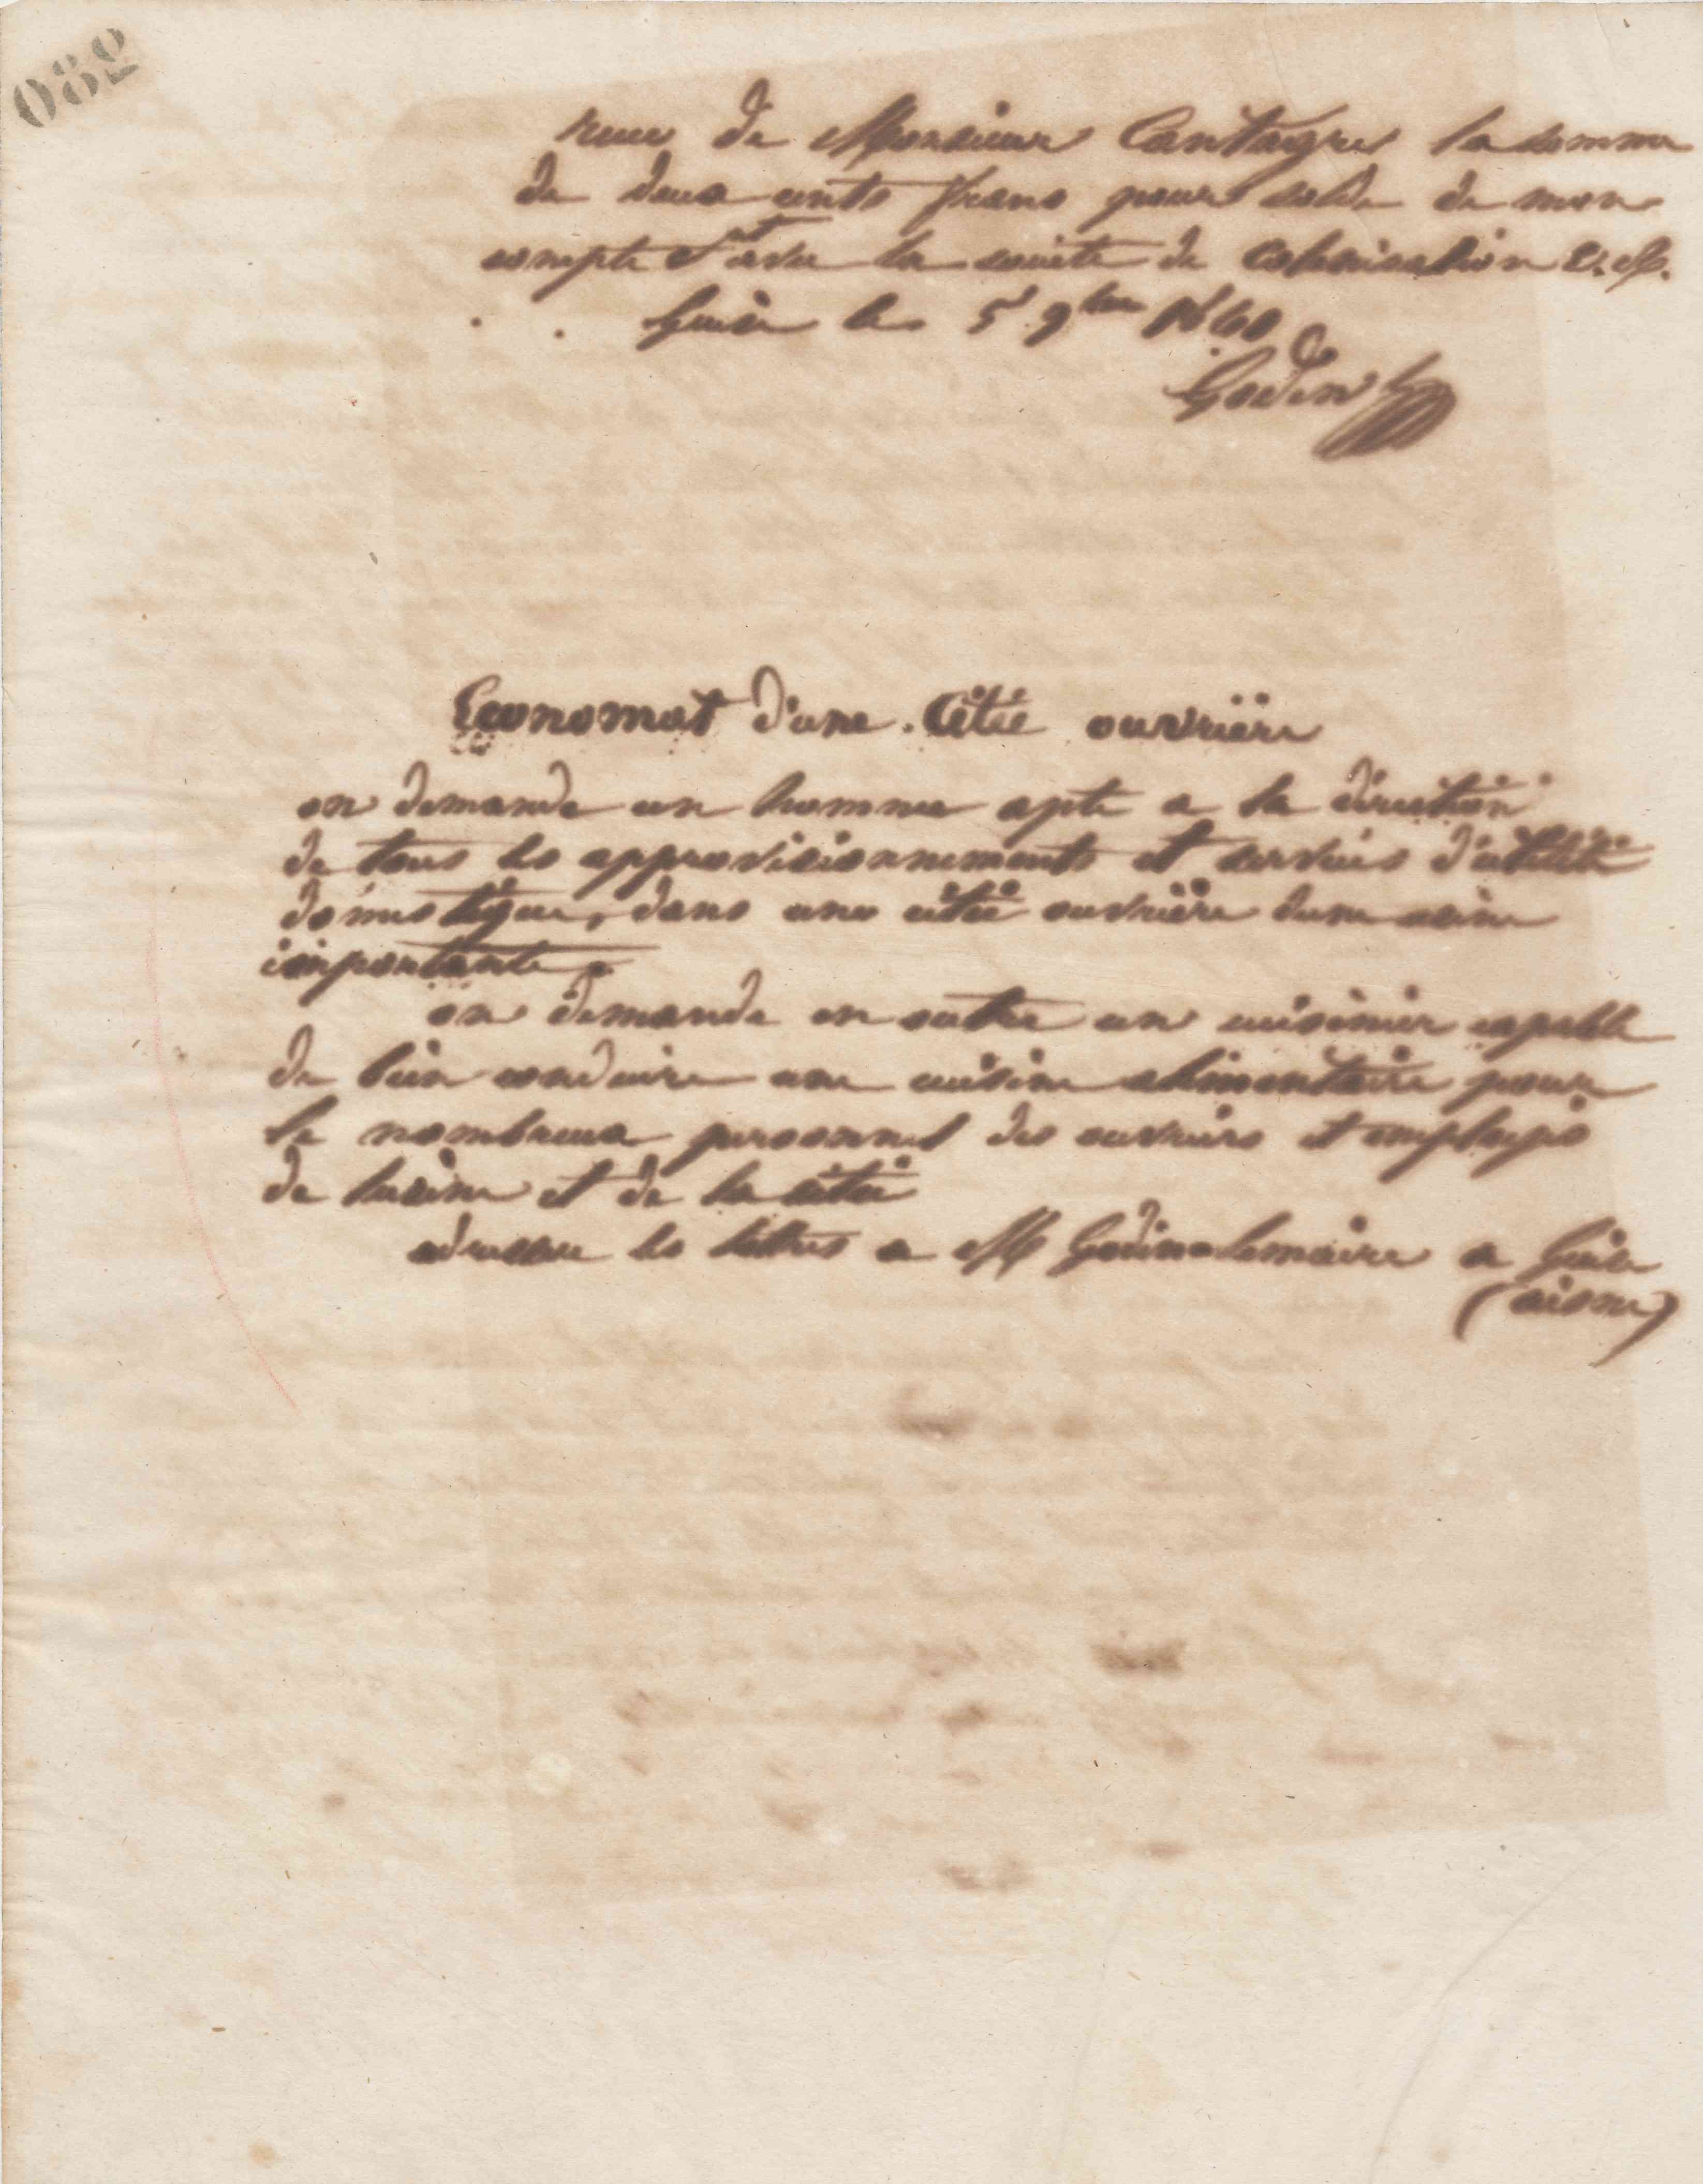 080
recu de Monsieur Cantagrel la somme
de deux cents francs pour solde de mon
compte avec la société de colonisation
Guise le 5 9bre 1860
Godin
Economat d'une Citée ouvrière
on demande un homme apte a la direction
de tous les approvisionnements et services d'utilité
domestique, dans une citée ouvrière d'une usine
importante.
on demande en outre un cuisinier capable
de bien conduire une cuisine alimentaire pour
le nombreux personnel des ouvriers et employés
de lusine et de la citée
adresser les lettres a M Godin-Lemaire a Guise
(aisne)